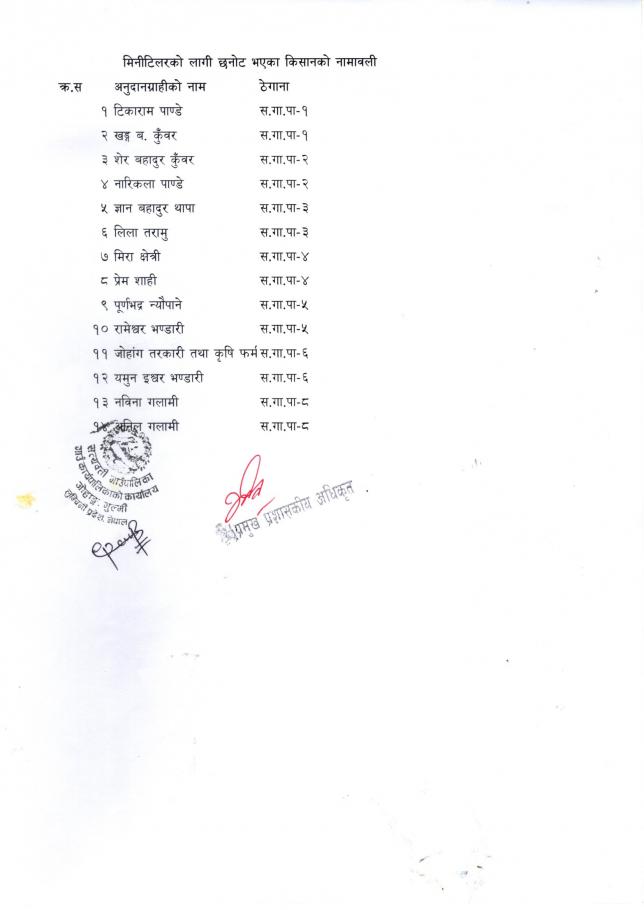 मिनीटिलरको लागी छनोट भएका किसानको नामावली
क्र.स अनुदानग्राहीको नाम ठेगाना
१ टिकाराम पाण्डे स.गा.पा-१
२ खड्ग ब. कुँवर स.गा.पा-१
३ शेर बहादुर कुँवर स.गा.पा-२
४ नारिकला पाण्डे स.गा.पा-२
५ ज्ञान बहादुर थापा स.गा.पा-३
६ लिला तरामु स.गा.पा-३
७ मिरा क्षेत्री स.गा.पा-४
८ प्रेम शाही स.गा.पा-४
९ पूर्णभद्र न्यौपाने स.गा.पा-५
१० रामेश्वर भण्डारी स.गा.पा-५
११ जोहांग तरकारी तथा कृषि फर्म स.गा.पा-६
१२ यमुन इश्वर भण्डारी स.गा.पा-६
१३ नविना गलामी स.गा.पा-८
१४ अनिल गलामी स.गा.पा-८
सत्यवती गाउँपालिका
गाउँ कार्यपालिकाको कार्यालय
जोहाङ, गुल्मी
लुम्बिनी प्रदेश, नेपाल
प्रमुख प्रशासकीय अधिकृत